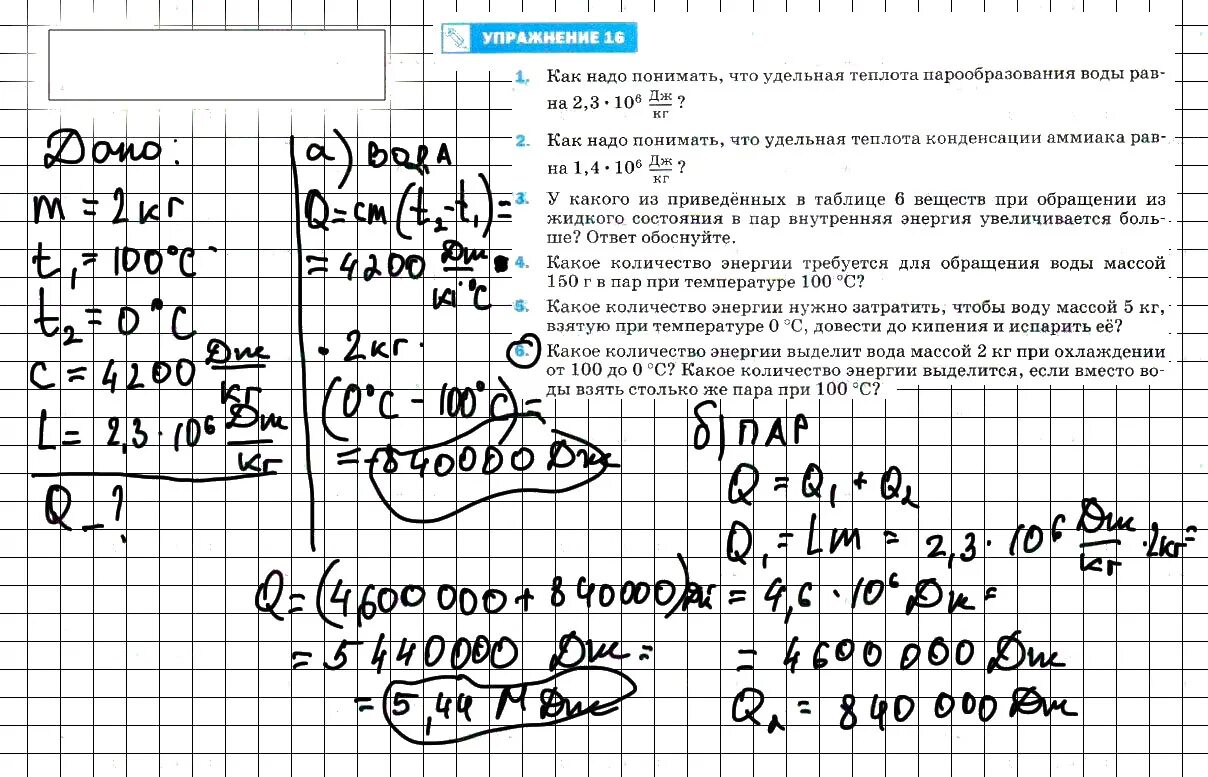 УПРАЖНЕНИЕ 16
1. Как надо понимать, что удельная теплота парообразования воды рав-
на 2,3 · 10⁶ Дж/кг ?
2. Как надо понимать, что удельная теплота конденсации аммиака рав-
на 1,4 · 10⁶ Дж/кг ?
3. У какого из приведённых в таблице 6 веществ при обращении из
жидкого состояния в пар внутренняя энергия увеличивается боль-
ше? Ответ обоснуйте.
4. Какое количество энергии требуется для обращения воды массой
150 г в пар при температуре 100 °C?
5. Какое количество энергии нужно затратить, чтобы воду массой 5 кг,
взятую при температуре 0 °C, довести до кипения и испарить её?
6. Какое количество энергии выделит вода массой 2 кг при охлаждении
от 100 до 0 °C? Какое количество энергии выделится, если вместо во-
ды взять столько же пара при 100 °C?
Дано:
m = 2 кг
t₁ = 100°C
t₂ = 0°C
c = 4200 Дж/кг
L = 2,3 · 10⁶ Дж/кг
Q – ?
а) ВОДА
Q = cm(t₂ - t₁) =
= 4200 Дж/кг°C ·
· 2 кг ·
(0°C - 100°C) =
= -840000 Дж
б) ПАР
Q = Q₁ + Q₂
Q₁ = Lm = 2,3 · 10⁶ Дж/кг · 2кг =
= 4,6 · 10⁶ Дж =
= 4600 000 Дж
Q₂ = 840 000 Дж
Q = (4600 000 + 840000) Дж
= 5440000 Дж =
= 5,44 МДж